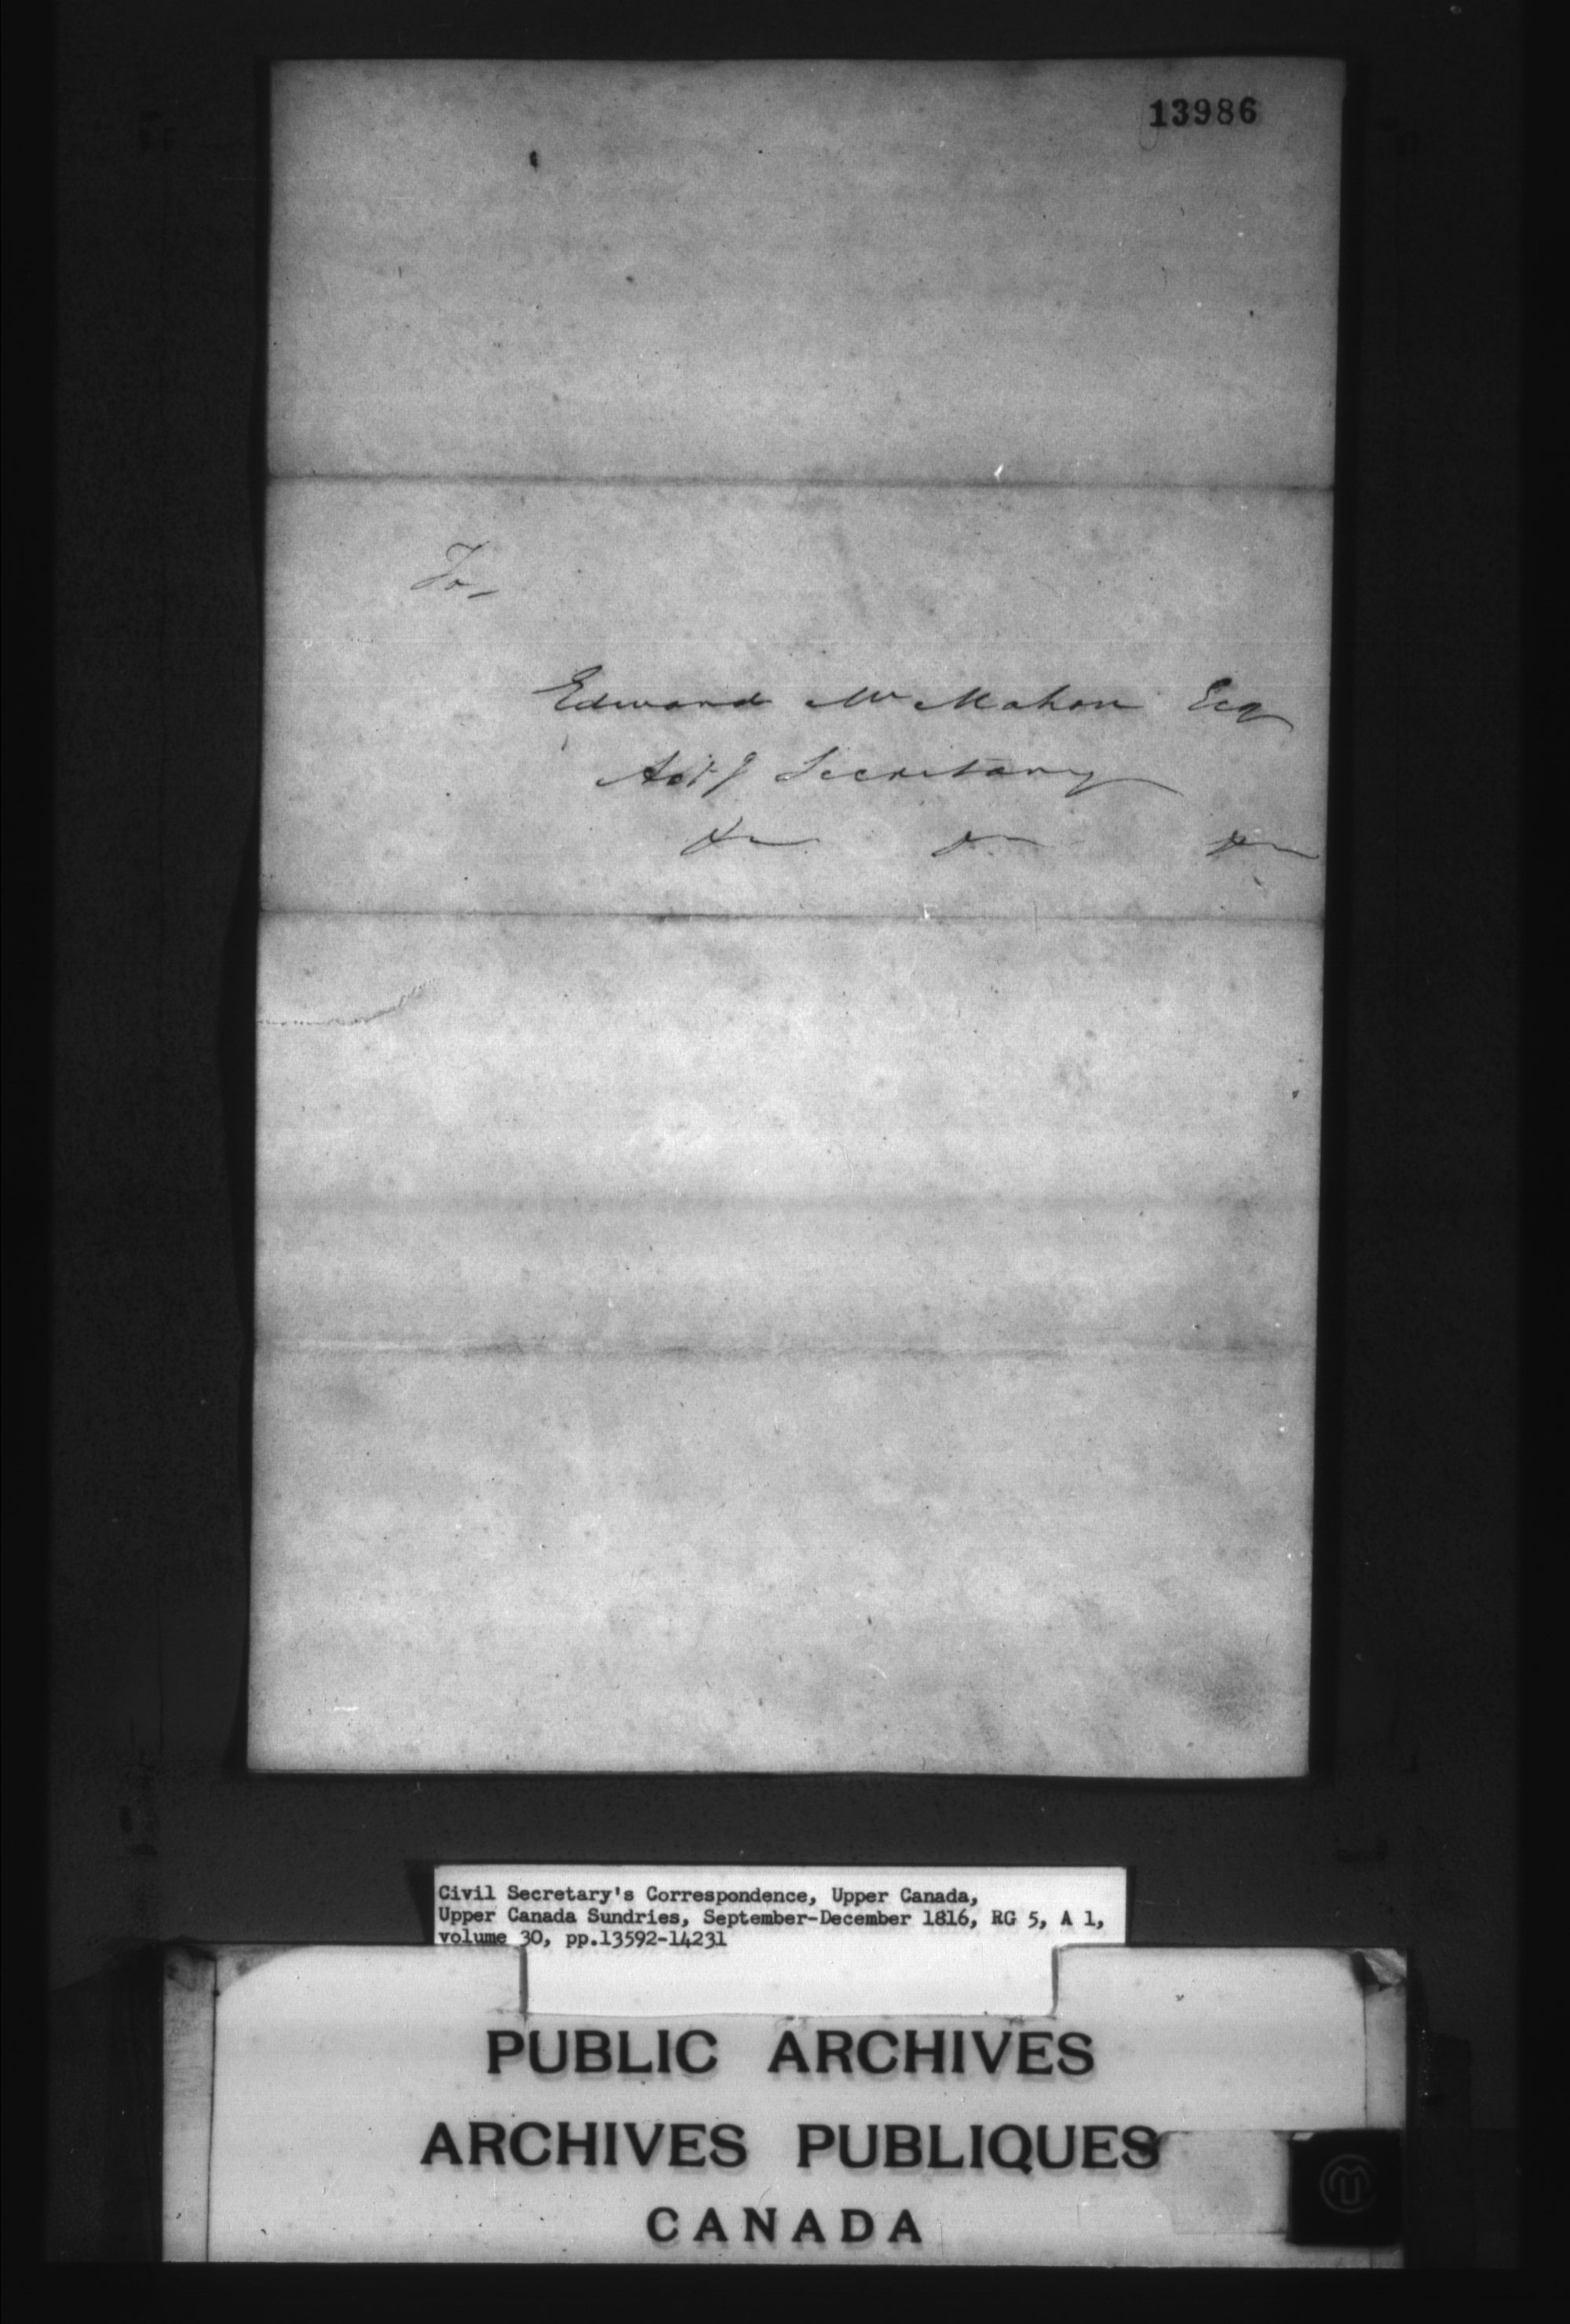 13986
To,
Edward McMahon Esq
Actg Secretary
&c &c &c
Civil Secretary's Correspondence, Upper Canada,
Upper Canada Sundries, September-December 1816, RG 5, A 1,
volume 30, pp.13592-14231
PUBLIC ARCHIVES
ARCHIVES PUBLIQUES
CANADA